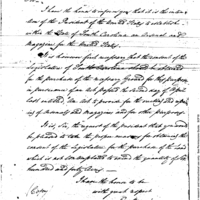 Sir,
I have the honor to inform you that it is the inten-
tion of the President of the United States to establish
within the State of South Carolina an Arsenal and
Magazine for the United States.
It however first necessary that the consent of the
Legislature of South Carolina should be obtained
for the purchase of the necessary Ground for this purpose
in pursuance of an act passed the second day of April
last entitled "An act to provide for the erecting and repair-
ing of Arsenals and Magazines and for other purposes."
It is, Sir, the request of the President that you would
be pleased to take the proper measures for obtaining the
consent of the Legislature for the purchase of the Land
which is not contemplated to exceed the quantity of six
hundred and forty Acres.
I have the honor to be
with great respect
(Copy)